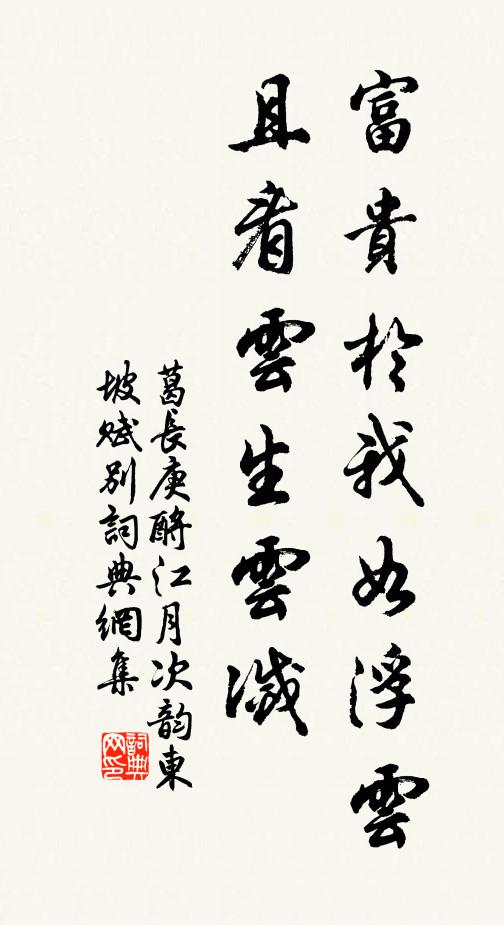 富貴於我如浮雲
且看雲生雲滅
葛長庚酹江月次韵東
坡賦別詞典網集
詞典网印